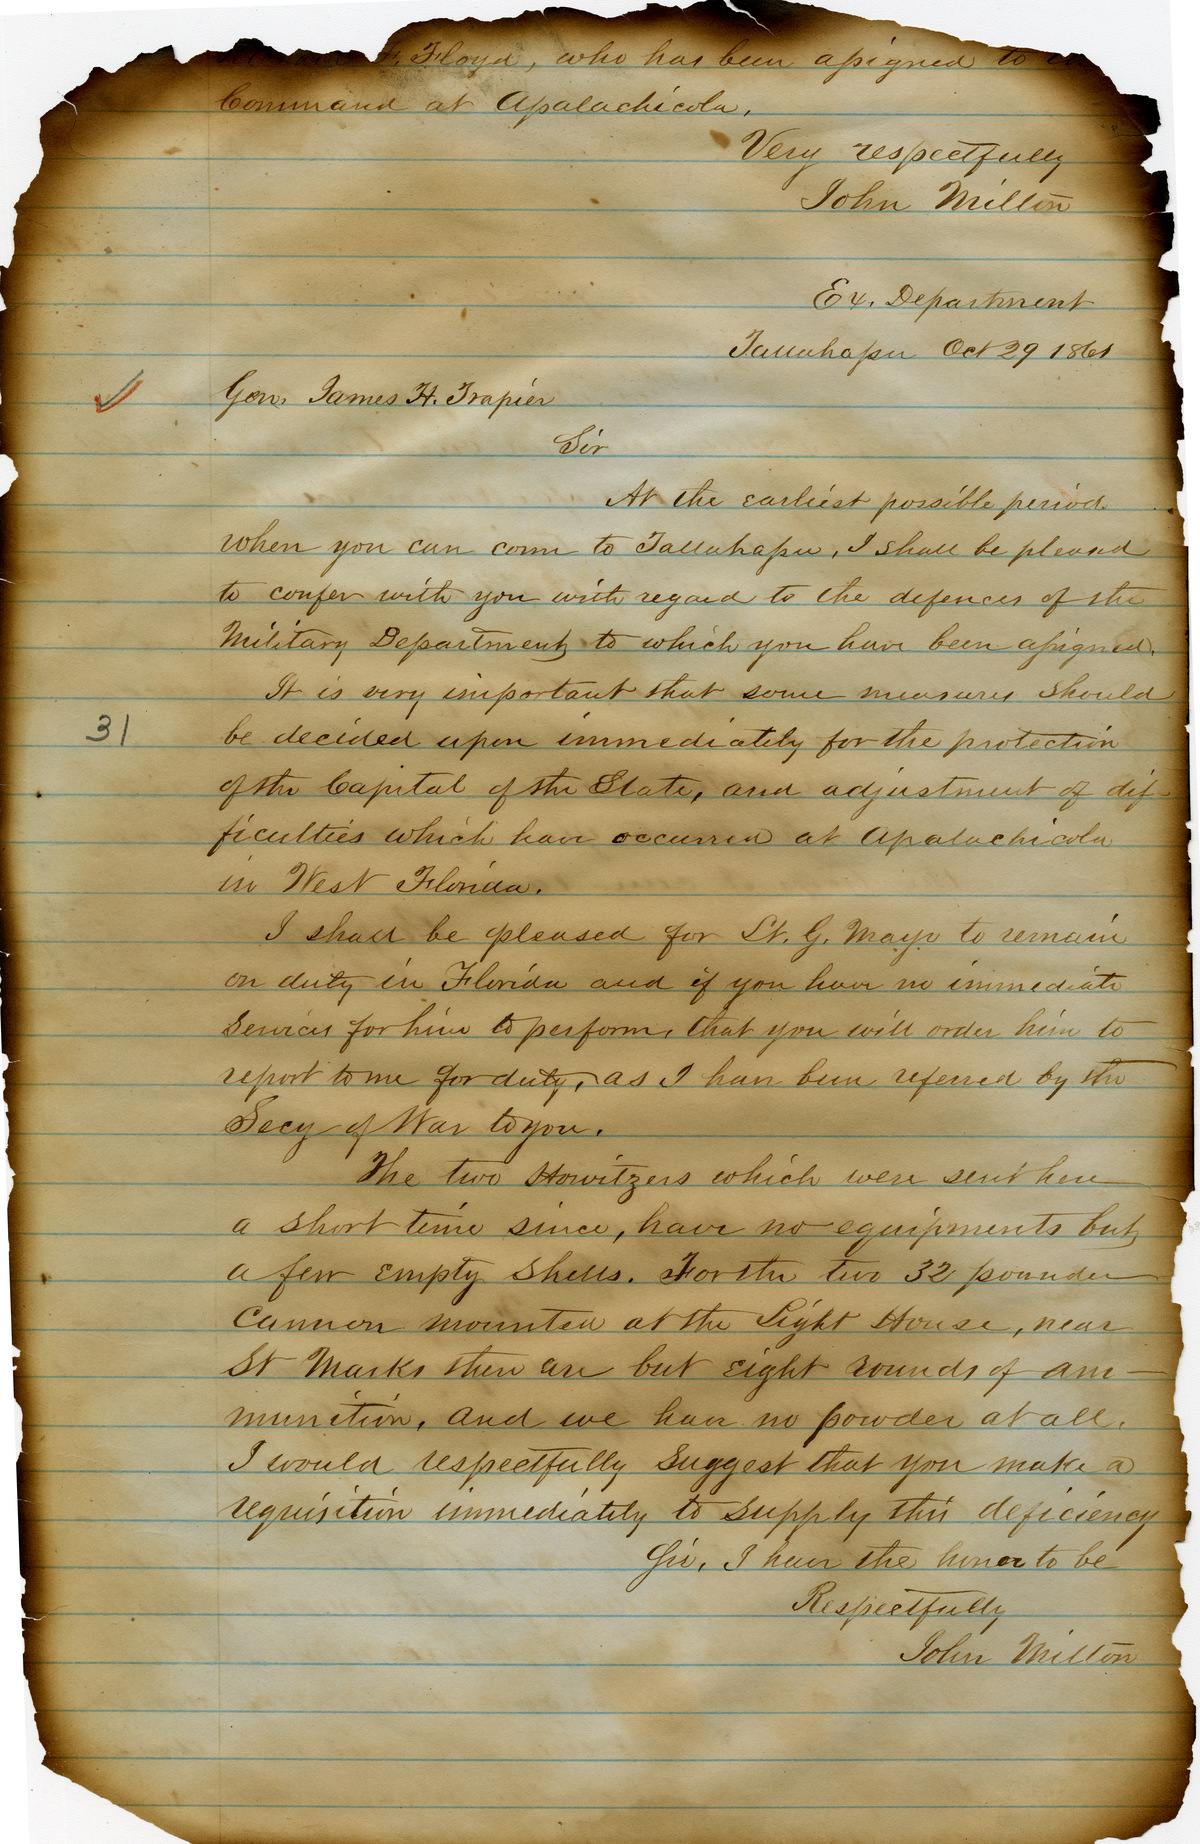 F. Floyd, who has been assigned to
Command at Apalachicola.
Very respectfully
John Milton
Ex. Department
Tallahassee Oct 29 1861
Gen. James H. Trapier
Sir
At the earliest possible period
when you can come to Tallahassee, I shall be pleased
to confer with you with regard to the defences of the
Military Department, to which you have been assigned.
It is very important that some measures should
31
be decided upon immediately for the protection
of the Capital of the State, and adjustment of dif-
ficulties which have occurred at Apalachicola
in West Florida.
I shall be pleased for Lt. G. Mayo to remain
on duty in Florida and if you have no immediate
services for him to perform, that you will order him to
report to me for duty, as I have been referred by the
Secy of War to you.
The two Howitzers which were sent here
a short time since, have no equipments but
a few empty shells. For the two 32 pounder
Cannon mounted at the Light House, near
St Marks there are but eight rounds of am-
munition, and we have no powder at all.
I would respectfully suggest that you make a
requisition immediately to supply this deficiency
Sir, I have the honor to be
Respectfully
John Milton